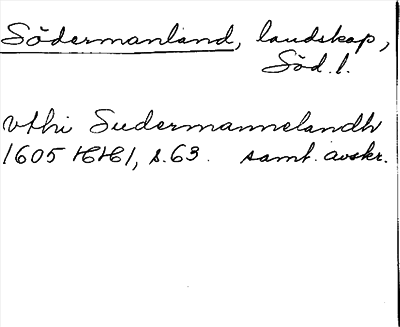 Södermanland, landskap,
Söd. l.
vthi Sudermannelandh
1605 HH 1, s. 63. samt. avskr.